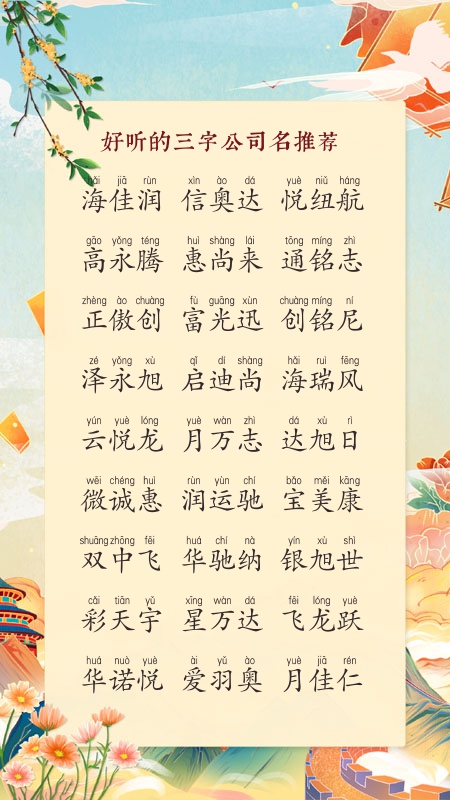 好听的三字公司名推荐
hǎi jiā rùn xìn ào dá yuè niǔ háng
海佳润 信奥达 悦纽航
gāo yǒng téng huì shàng lái tōng míng zhì
高永腾 惠尚来 通铭志
zhèng ào chuàng fù guāng xùn chuàng míng ní
正傲创 富光迅 创铭尼
zé yǒng xù qǐ dí shàng hǎi ruì fēng
泽永旭 启迪尚 海瑞风
yún yuè lóng yuè wàn zhì dá xù rì
云悦龙 月万志 达旭日
wēi chéng huì rùn yùn chí bǎo měi kāng
微诚惠 润运驰 宝美康
shuāng zhōng fēi huá chí nà yín xù shì
双中飞 华驰纳 银旭世
cǎi tiān yǔ xīng wàn dá fēi lóng yuè
彩天宇 星万达 飞龙跃
huá nuò yuè ài yǔ ào yuè jiā rén
华诺悦 爱羽奥 月佳仁